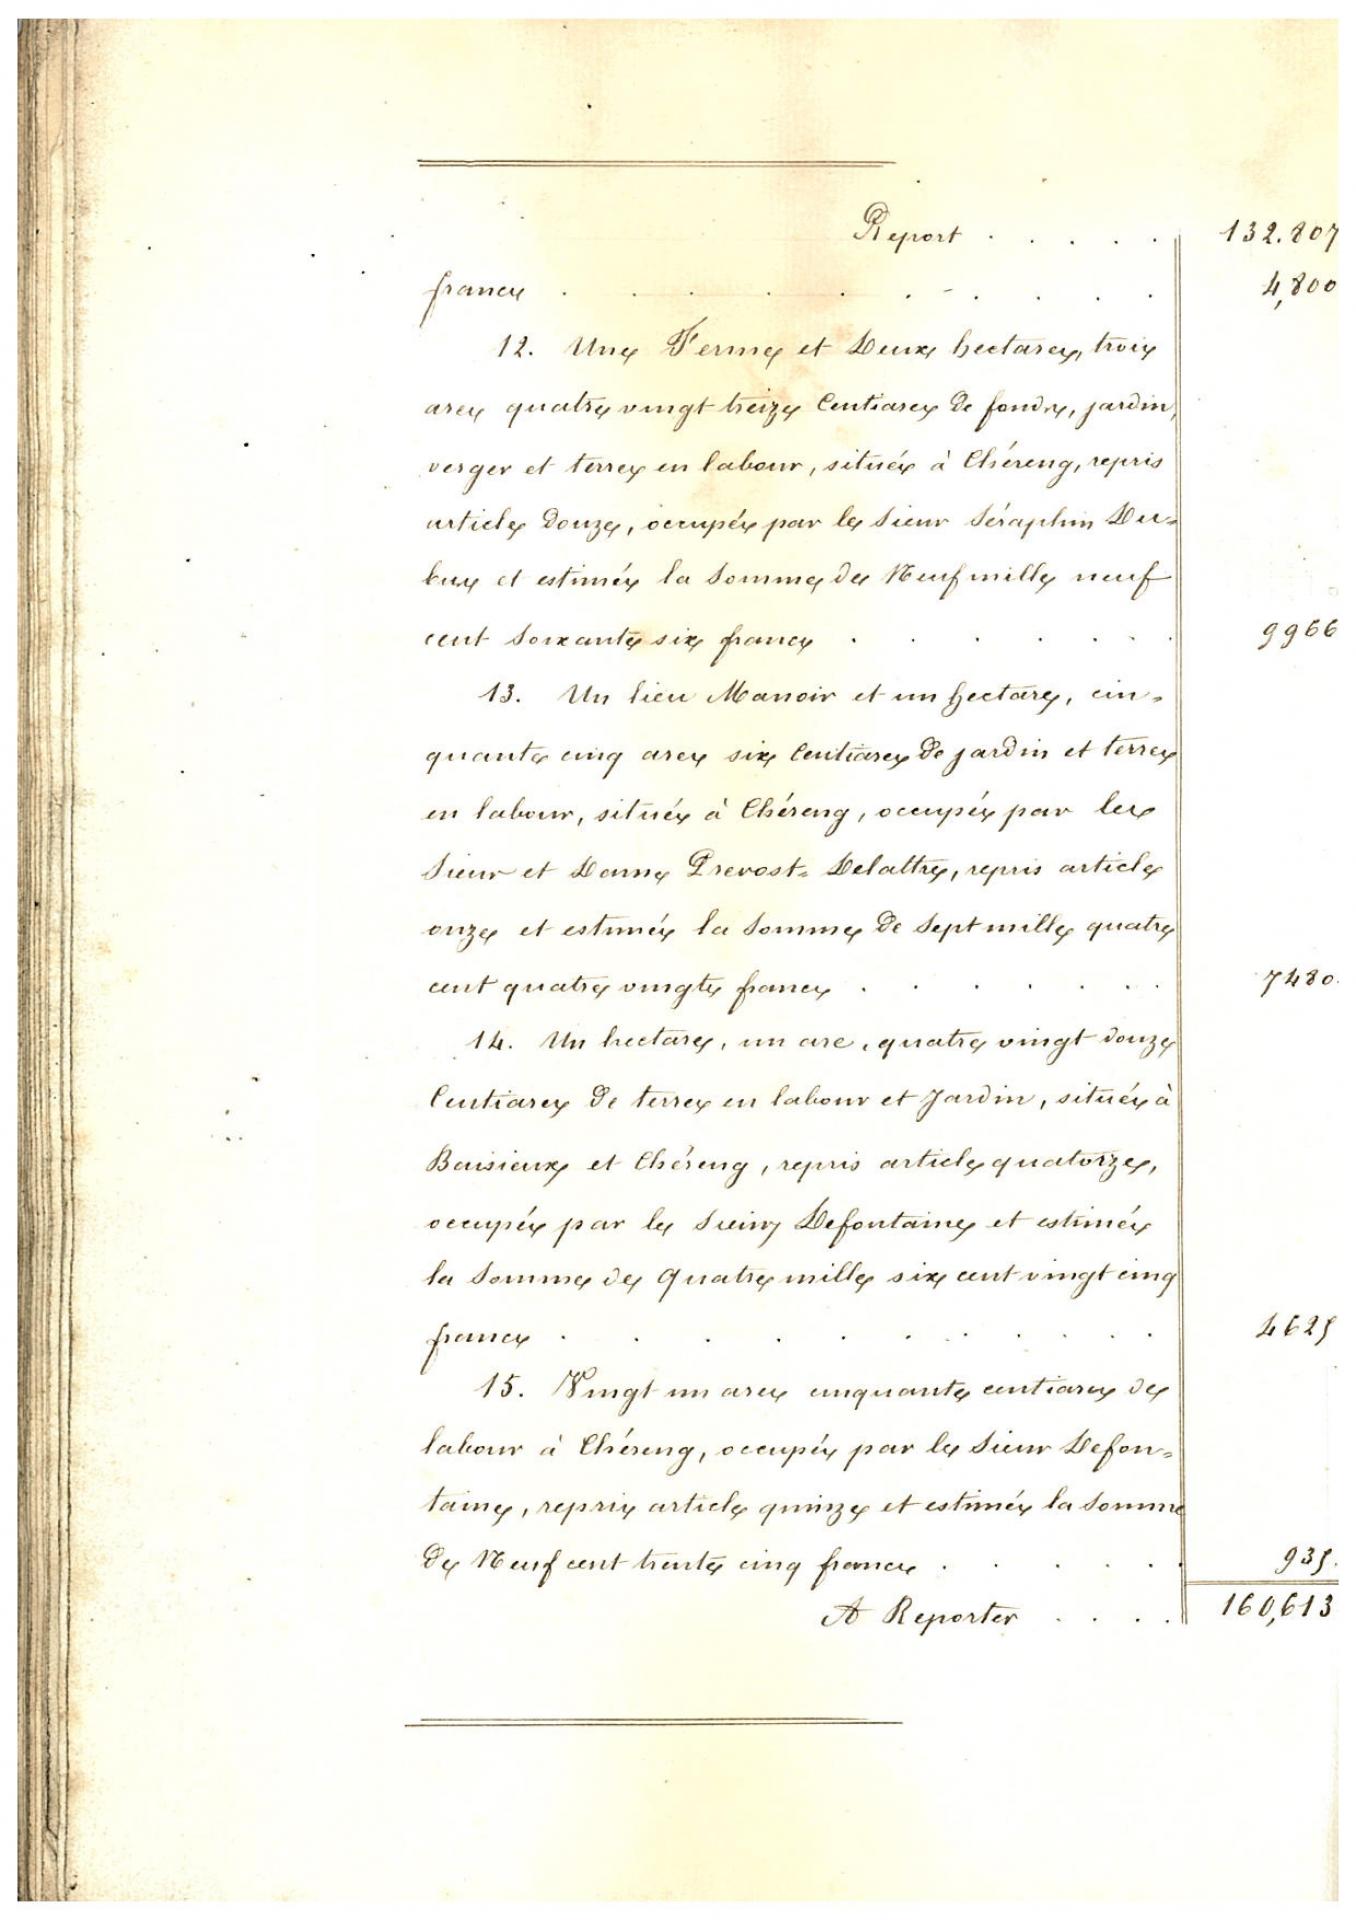 Report . . . . . 132.807
francs . . . . . . . . . . 4,800
12. Une Ferme et Deux hectares, trois
ares quatre vingt treize Centiares de fonds, jardin,
verger et terres en labour, située à Chéreng, repris
article douze, occupée par le Sieur Séraphin
et estimée la Somme de Neuf mille neuf
cent Soixante six francs . . . . . . 9966
13. Un lieu Manoir et un hectare, cin-
quante cinq ares six Centiares de jardin et terres
en labour, situés à Chéreng, occupés par les
Sieur et Dame Prevost-Delattre, repris article
onze et estimés la Somme de Sept mille quatre
cent quatre vingts francs . . . . . . 7480.
14. Un hectare, un are, quatre vingt douze
Centiares de terres en labour et Jardin, situés à
Baisieux et Chéreng, repris article quatorze,
occupés par le Sieur Defontaine et estimés
la Somme de Quatre mille six cent vingt cinq
francs . . . . . . . . . 4625
15. Vingt un ares cinquante centiares de
labour à Chéreng, occupés par le Sieur Defon-
taine, repris article quinze et estimés la Somme
de Neuf cent trente cinq francs . . . . . 935.
A Reporter . . . . 160,613